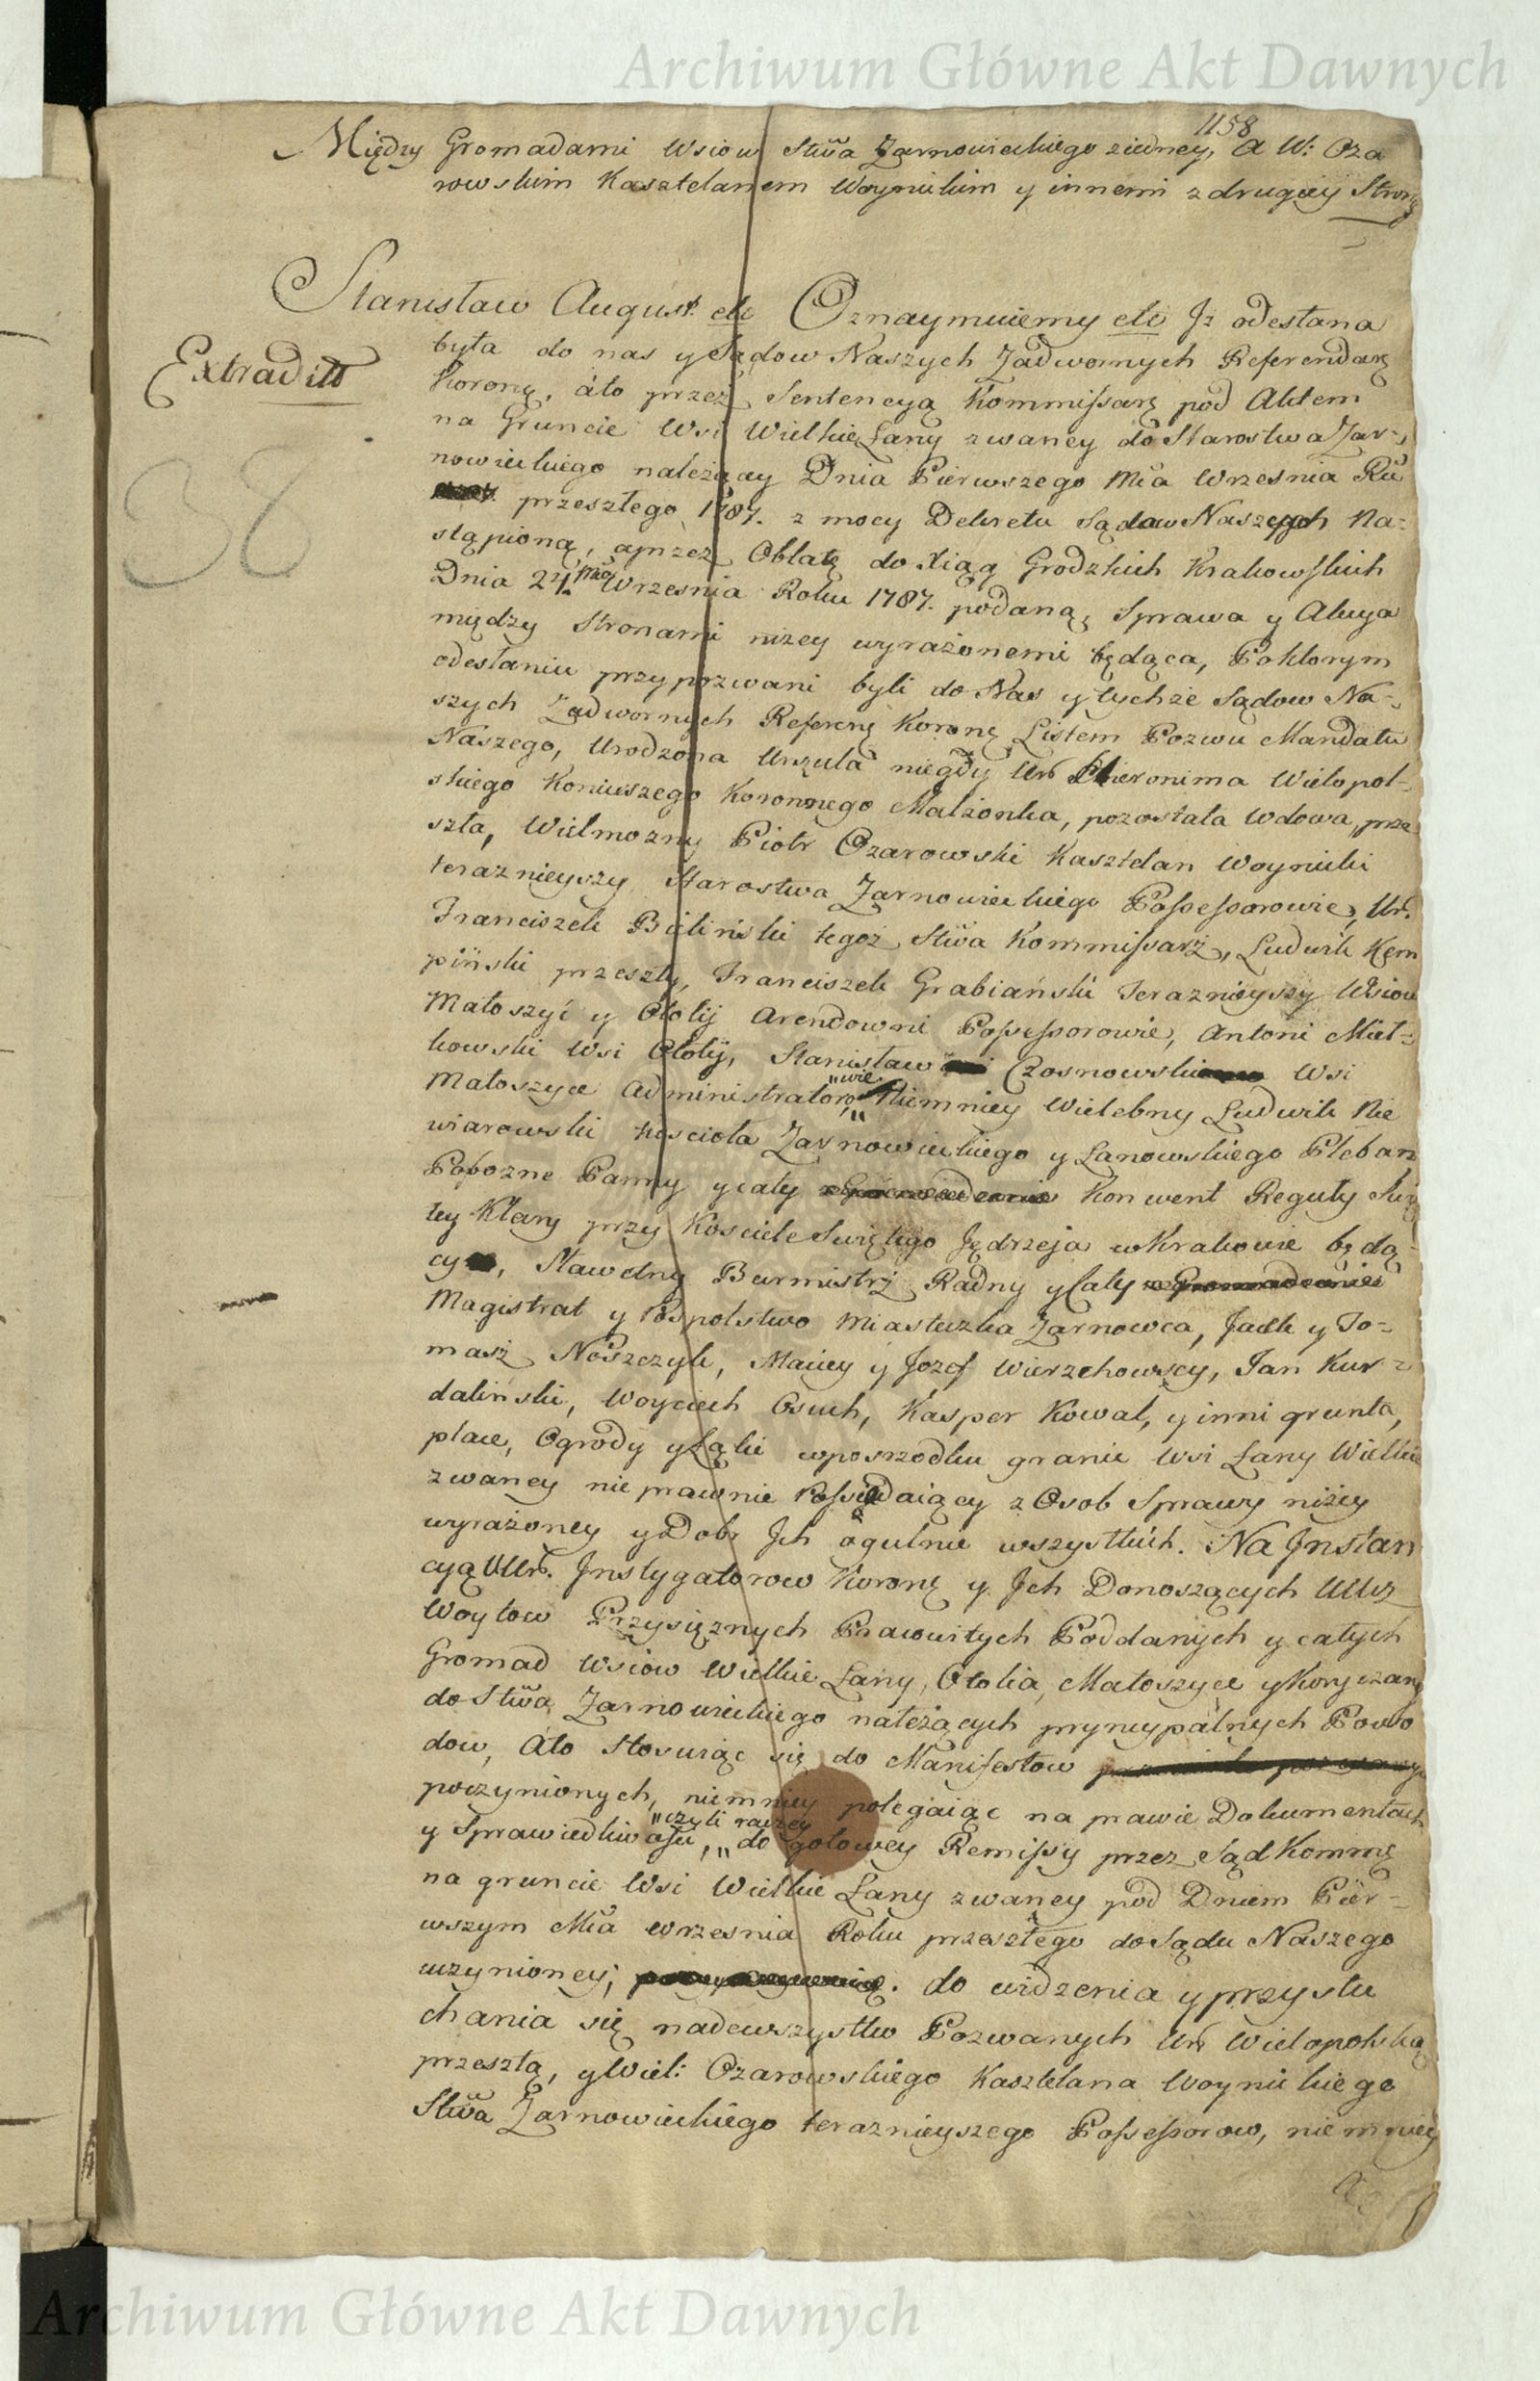 Archiwum Główne Akt Dawnych
1158
Między Gromadami Wsiow Sttwa Żarnowieckiego ziedney, A W: Oża
rowskim Kasztelanem Woynickim y innemi z drugiey Strony
Stanisław August etc Oznaymuiemy etc Jż odesłana
Extraditt
była do nas y Sądow Naszych Zadwornych Referendarę
Koronę, áto przez Sentencyą Kommissarę pod Aktem
na Gruncie Wsi Wielkie Łany zwaney do Starostwa Żar-
38
nowieckiego należący Dnia Pierwszego Mca Wrzesnia Ru
przeszłego 1787. z mocy Dekretu Sądow Naszych Na-
stąpioną, aprzez Oblatę do Xiąg Grodzkich Krakowskich
Dnia 24. Mca Wrzesnia Roku 1787. podaną, Sprawa y Akcya
między Stronami niżey wyrażonemi będąca, Poktorym
odesłaniu przypozwani byli do Nas y tychże Sądow Na-
szych Zadwornych Referenę Koronę Listem Pozwu Mandatu
Naszego, Urodzona Urszula niegdy Ur Hieronima Wielopol-
skiego Koniuszego Koronnego Małżonka, pozostała Wdowa, prze
szła, Wielmożny Piotr Ożarowski Kasztelan Woynicki
teraznieyszy Starostwa Żarnowieckiego Possessorowie, Ur.
Franciszek Bieliński tegoż Sttwa Kommissarz, Ludwik Kęm
piński przeszły, Franciszek Grabiański Teraznieyszy Wsiow
Małoszyć y Otolij Arendowni Possessorowie, Antoni Miel-
kowski Wsi Otolij, Stanisław Czosnowski Wsi
Małoszyce Administratoro"wie" Niemniey Wielebny Ludwik Nie
wiarowski Kościoła Żarnowieckiego y Łanowskiego Pleban
Pobożne Panny y cały Konwent Reguły Swię
tey Klary przy Kosciele Swiętego Jędrzeja w Krakowie będą-
cy, Sławetny Burmistrz Radny y Cały
Magistrat y Pospolstwo Miasteczka Żarnowca, Jacek y To-
masz Noszczyk, Maciey y Jozef Wierzchowscy, Jan Kur-
daliński, Woyciech Osuch, Kasper Kowal, y inni grunta,
place, Ogrody y Łąki wposrzodku granic Wsi Łany Wielkie
zwaney nieprawnie Possiedaiący z Osob Sprawy niżey
wyrażoney y Dobr Jch ogulnie wszystkich. Na Jnstan
cyą UUr. Jnstygatorow Koronę y Jch Donoszących UUcz
Woytow Przysiężnych Prawowitych Poddanych y całych
Gromad Wsiow Wielkie Łany, Otolia, Małoszyce y Koryczany
do Sttwa Żarnowieckiego należących pryncypalnych Powo
dow, Ato Stosuiąc się do Manifestow
poczynionych, niemniey polegaiąc na prawie Dokumentach
y Sprawiedliwości, "czyli raczey" do gotowey Remissy przez Sąd Kommę
na gruncie Wsi Wielkie Łany zwaney pod Dniem Pier-
wszym Mca Wrzesnia Roku przeszłego do Sądu Naszego
uczynioney; do widzenia y przysłu
chania się nadewszystko Pozwanych Ur Wielopolską
przeszłą, y Wiel: Ożarowskiego Kasztelana Woynickiego
Sttwa Żarnowieckiego teraznieyszego Possessorow, niemniey
Archiwum Główne Akt Dawnych